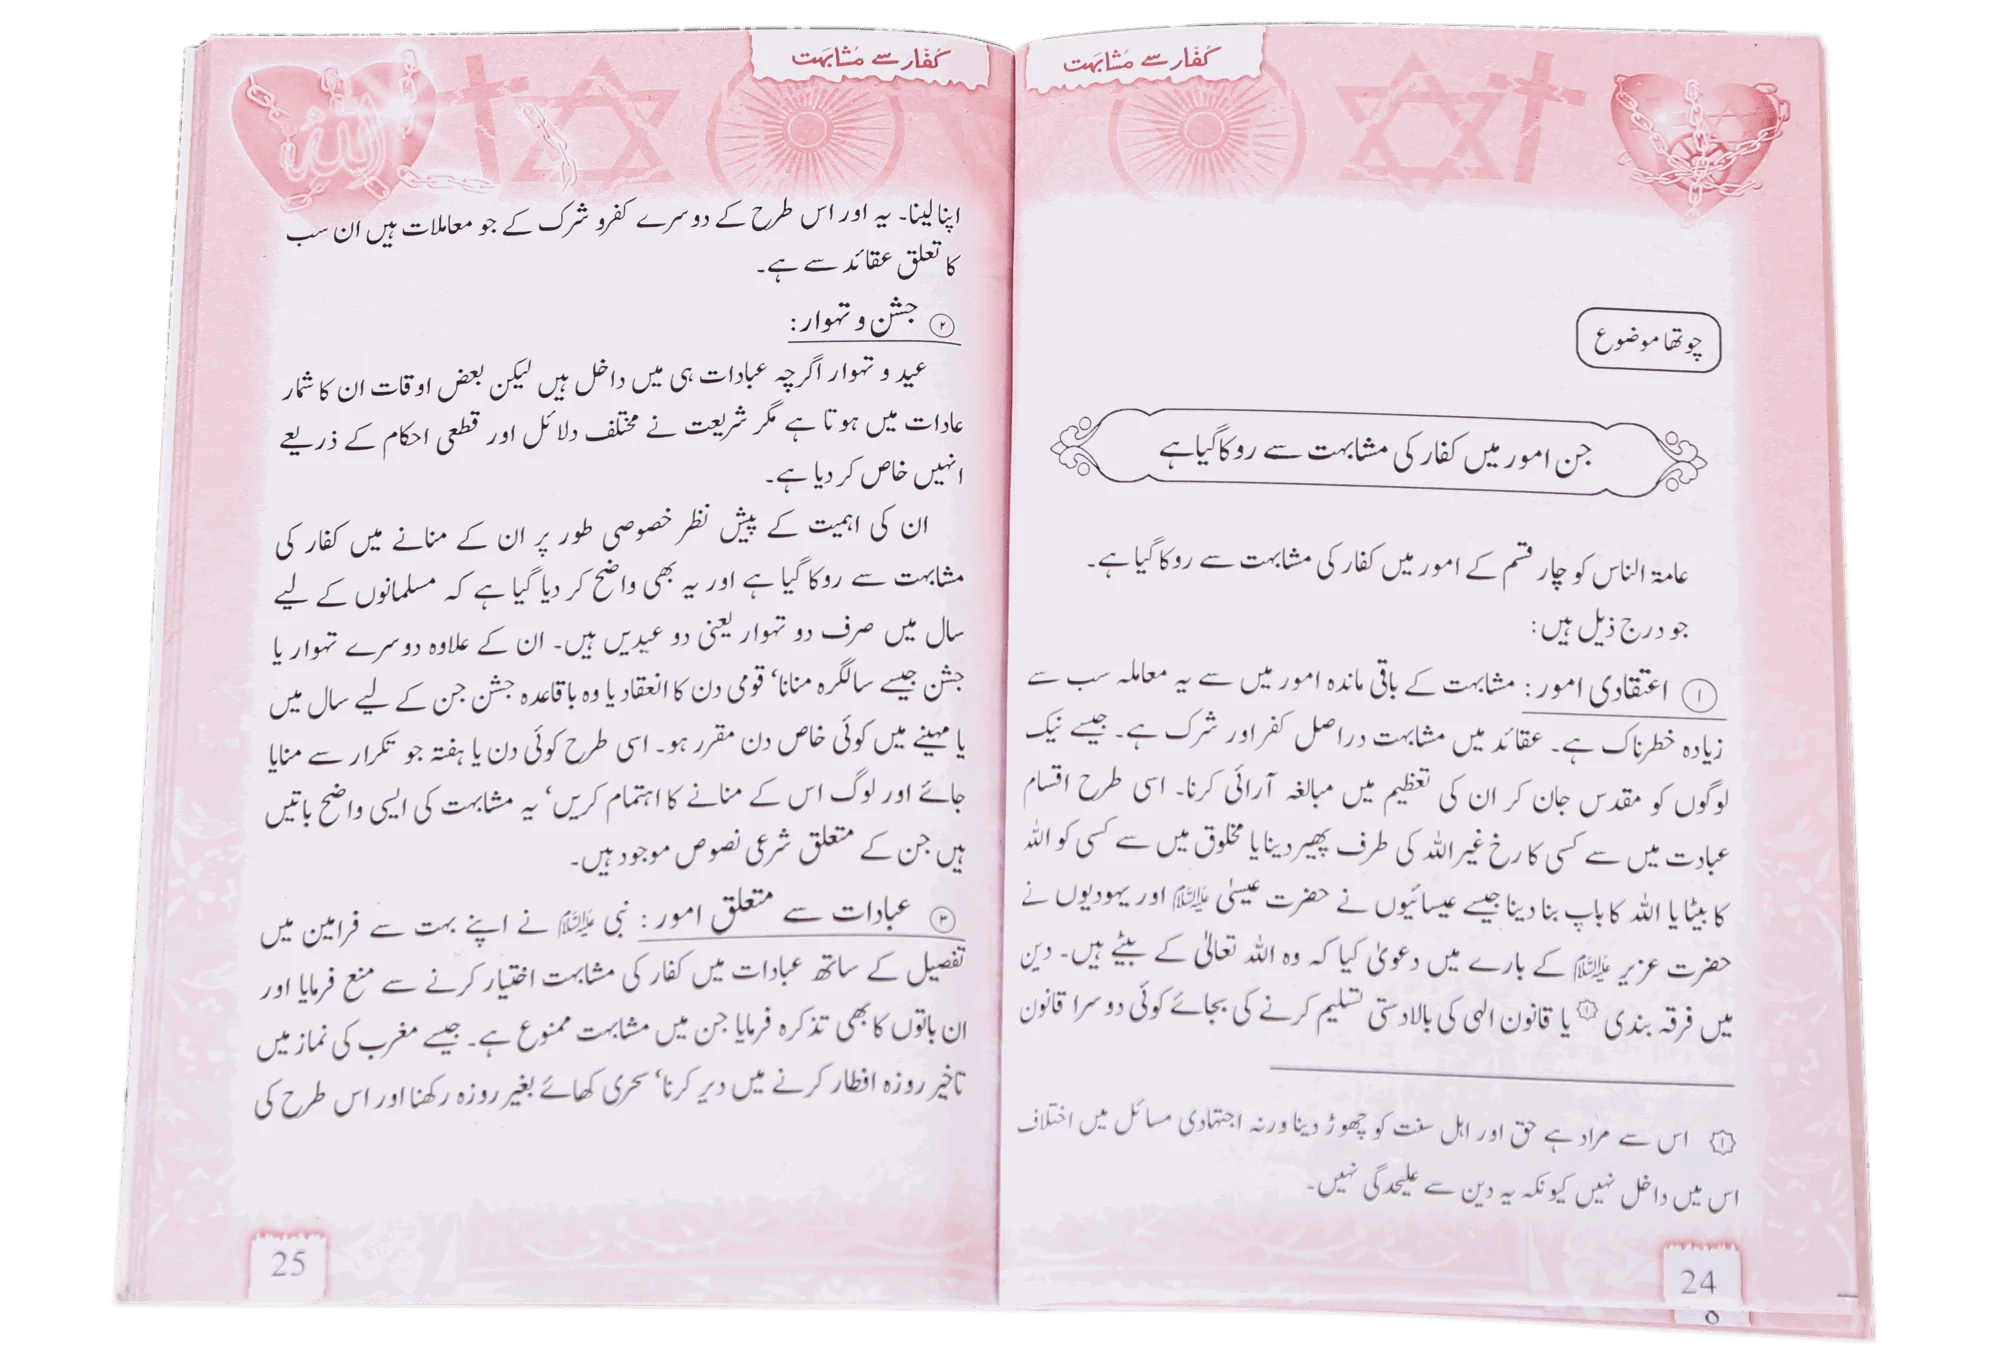 کفار سے مشابہت
چوتھا موضوع
جن امور میں کفار کی مشابہت سے روکا گیا ہے
عامۃ الناس کو چار قسم کے امور میں کفار کی مشابہت سے روکا گیا ہے۔
جو درج ذیل ہیں:
① اعتقادی امور: مشابہت کے باقی ماندہ امور میں سے یہ معاملہ سب سے
زیادہ خطرناک ہے۔ عقائد میں مشابہت دراصل کفر اور شرک ہے۔ جیسے نیک
لوگوں کو مقدس جان کر ان کی تعظیم میں مبالغہ آرائی کرنا۔ اسی طرح اقسام
عبادت میں سے کسی کا رخ غیر اللہ کی طرف پھیر دینا یا مخلوق میں سے کسی کو اللہ
کا بیٹا یا اللہ کا باپ بنا دینا جیسے عیسائیوں نے حضرت عیسیٰ علیہ السلام اور یہودیوں نے
حضرت عزیر علیہ السلام کے بارے میں دعویٰ کیا کہ وہ اللہ تعالیٰ کے بیٹے ہیں۔ دین
میں فرقہ بندی ① یا قانون الہی کی بالادستی تسلیم کرنے کی بجائے کوئی دوسرا قانون
① اس سے مراد ہے حق اور اہل سنت کو چھوڑ دینا ورنہ اجتہادی مسائل میں اختلاف
اس میں داخل نہیں کیونکہ یہ دین سے علیحدگی نہیں۔
24
کفار سے مشابہت
اللہ
اپنا لینا۔ یہ اور اس طرح کے دوسرے کفر و شرک کے جو معاملات ہیں ان سب
کا تعلق عقائد سے ہے۔
② جشن و تہوار:
عید و تہوار اگرچہ عبادات ہی میں داخل ہیں لیکن بعض اوقات ان کا شمار
عادات میں ہوتا ہے مگر شریعت نے مختلف دلائل اور قطعی احکام کے ذریعے
انہیں خاص کر دیا ہے۔
ان کی اہمیت کے پیش نظر خصوصی طور پر ان کے منانے میں کفار کی
مشابہت سے روکا گیا ہے اور یہ بھی واضح کر دیا گیا ہے کہ مسلمانوں کے لیے
سال میں صرف دو تہوار یعنی دو عیدیں ہیں۔ ان کے علاوہ دوسرے تہوار یا
جشن جیسے سالگرہ منانا‘ قومی دن کا انعقاد یا وہ باقاعدہ جشن جن کے لیے سال میں
یا مہینے میں کوئی خاص دن مقرر ہو۔ اسی طرح کوئی دن یا ہفتہ جو تکرار سے منایا
جائے اور لوگ اس کے منانے کا اہتمام کریں‘ یہ مشابہت کی ایسی واضح باتیں
ہیں جن کے متعلق شرعی نصوص موجود ہیں۔
③ عبادات سے متعلق امور: نبی علیہ السلام نے اپنے بہت سے فرامین میں
تفصیل کے ساتھ عبادات میں کفار کی مشابہت اختیار کرنے سے منع فرمایا اور
ان باتوں کا بھی تذکرہ فرمایا جن میں مشابہت ممنوع ہے۔ جیسے مغرب کی نماز میں
تاخیر روزہ افطار کرنے میں دیر کرنا‘ سحری کھائے بغیر روزہ رکھنا اور اس طرح کی
25